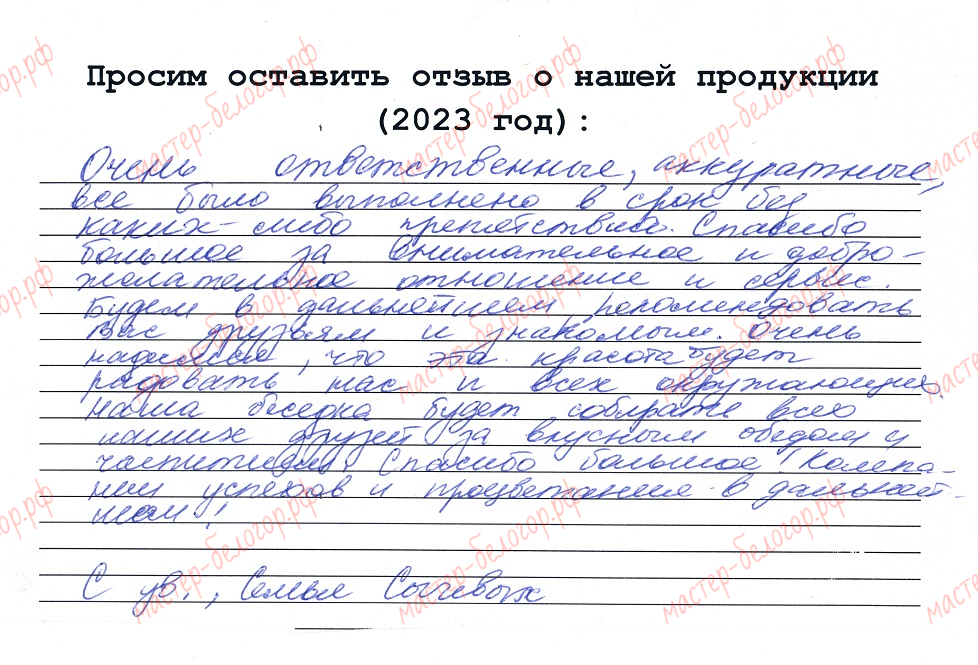 Просим оставить отзыв о нашей продукции
(2023 год):
Очень ответственные, аккуратные,
все было выполнено в срок без
каких-либо препятствий. Спасибо
большое за внимательное и добро-
желательное отношение и сервис.
Будем в дальнейшем рекомендовать
Вас друзьям и знакомым. Очень
надеемся, что эта красота будет
радовать нас и всех окружающих.
Наша беседка будет собирать всех
наших друзей за вкусным обедом и
чаепитием. Спасибо большое! Компа-
нии успехов и процветания в дальней-
шем!
С ув., Семья
мастер-белогор.рф